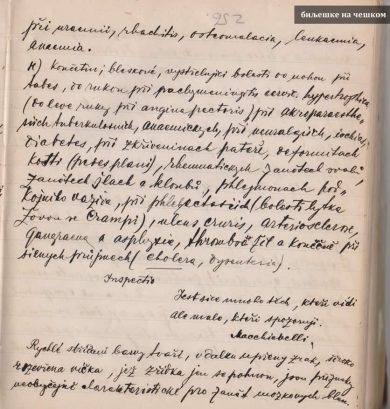 биљешке на чешком
252
při uraemii, rhachitis, osteomalacia, leukaemia,
anaemia.
K) končetin; bleskové, vystřelující bolesti do nohou při
tabes, do rukou při pachymeningitis cervic. hypertrophica
(do levé ruky při angina pectoris), při akroparaesthe-
siích tuberkulosních, anaemických, při neuralgiích, ischias
diabetes, při zkřiveninách páteře, deformitách
kostí (pedes plani), rheumatických zánětech svalů,
zánětech šlach a kloubů, phlegmonach
vaziva, při phlebectasiích (bolesti lýtka
zvou se Crampi), ulcus cruris, arteriosclerose,
gangraena a asphyxie, thrombose žil a konečně při
silných průjmech (cholera, dysenteria).
Inspectio
Jest sice mnoho těch, kteří vidí
Ale málo, kteří spozorují.
Macchiabelli.
Rychlé střídání barvy tváří, v dálku upřený zrak, široko
rozevřená víčka, jež zřídka jen se pohnou, jsou příznaky
neobyčejně charakteristické pro zánět mozkových blan